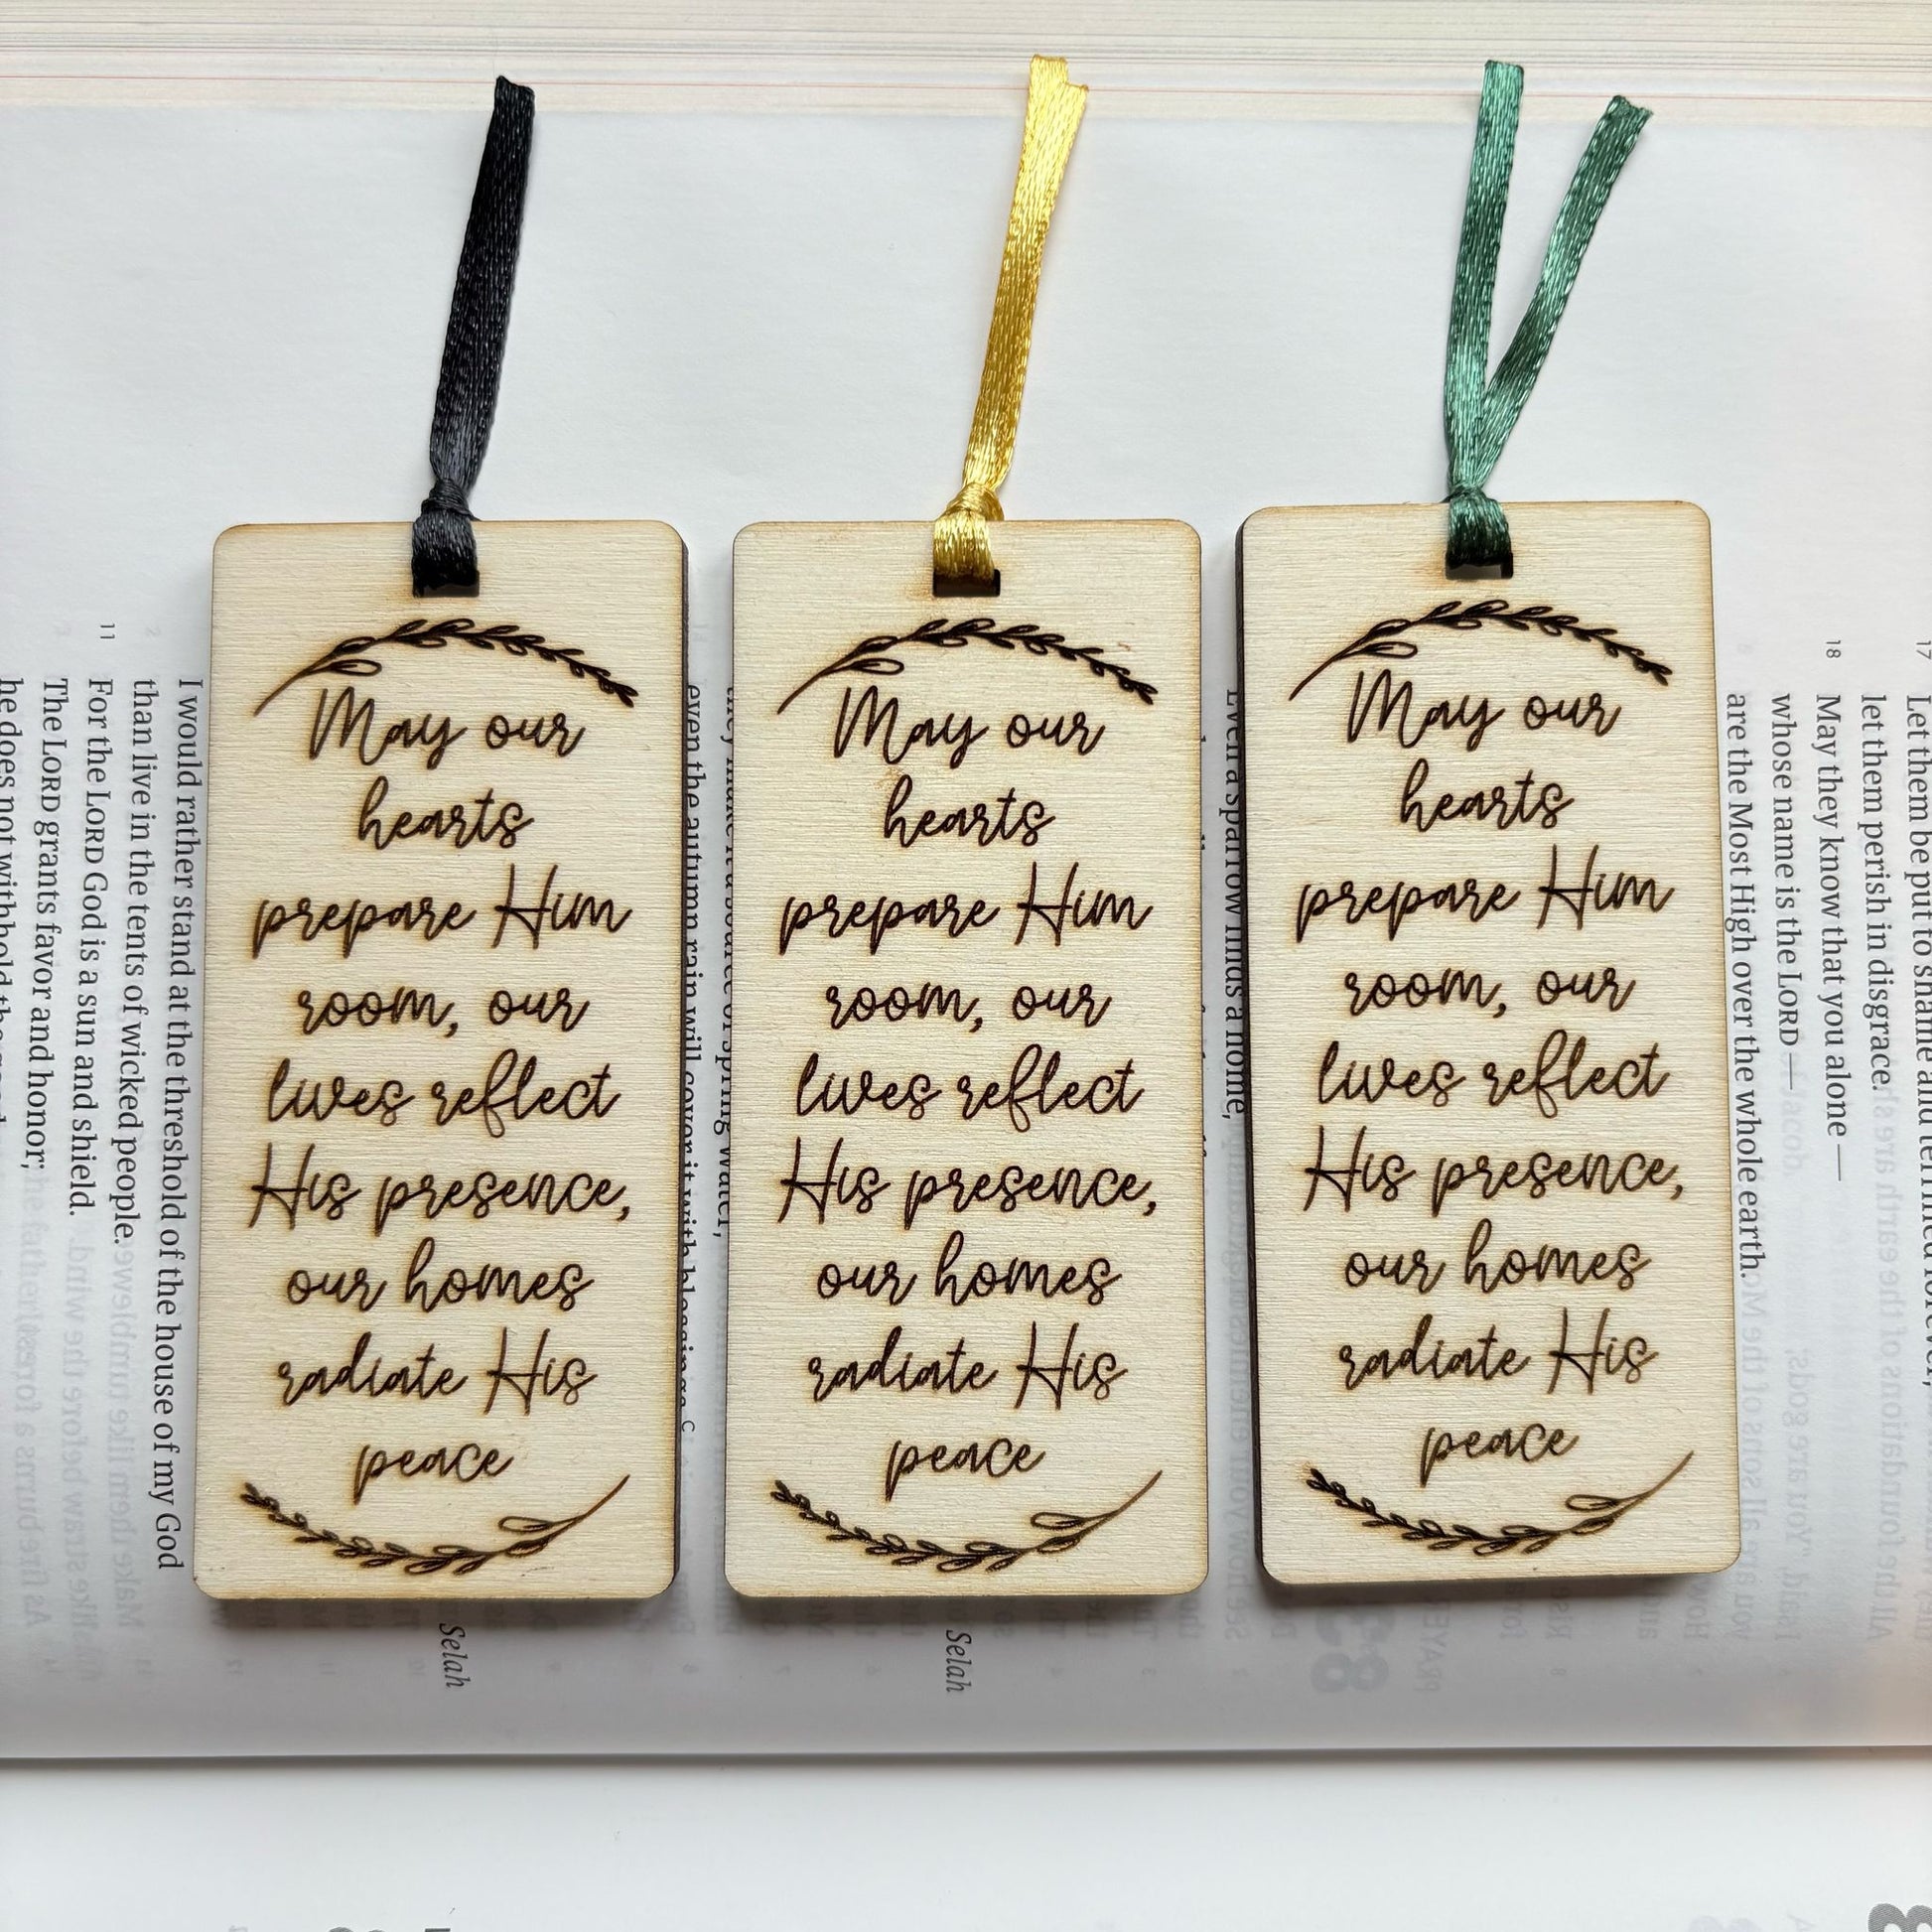 May our
hearts
prepare Him
room, our
lives reflect
His presence,
our homes
radiate His
peace
May our
hearts
prepare Him
room, our
lives reflect
His presence,
our homes
radiate His
peace
May our
hearts
prepare Him
room, our
lives reflect
His presence,
our homes
radiate His
peace
17
let them perish in disgrace.
18 May they know that you alone —
whose name is the LORD —
are the Most High over the whole earth.
Selah
even the autumn rain will cover it with blessings.
Selah
I would rather stand at the threshold of the house of my God
than live in the tents of wicked people.
11 For the LORD God is a sun and shield.
The LORD grants favor and honor;